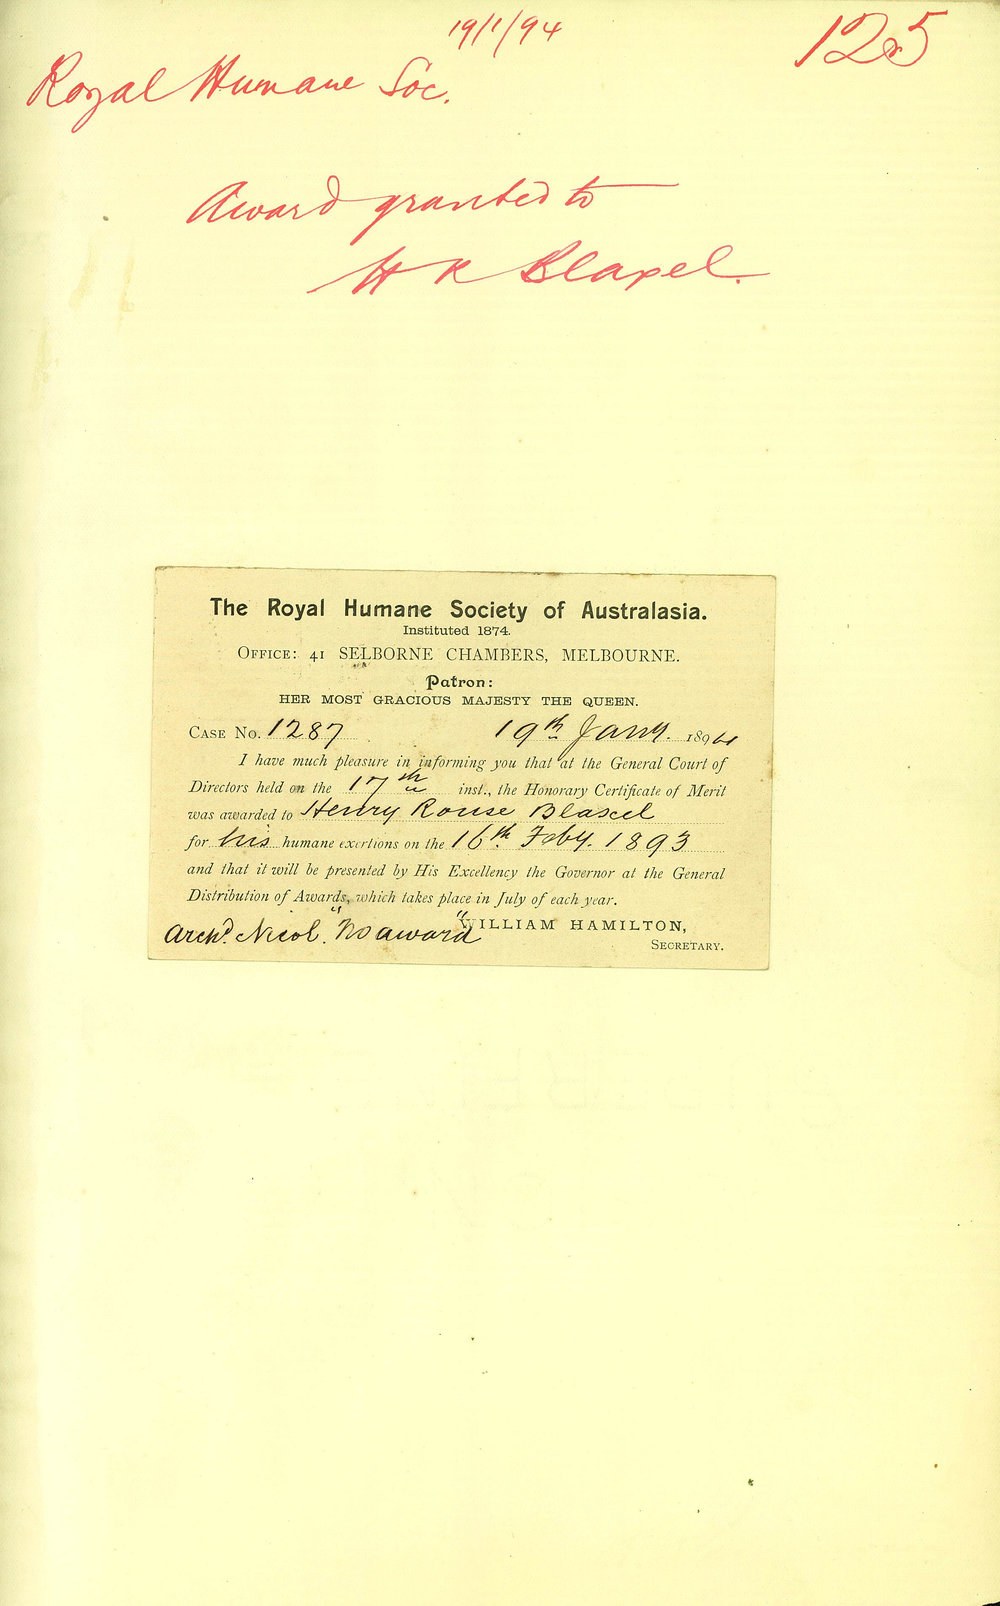 19/1/94
125
Royal Humane Soc.
Award granted to
H R Blaxel.
The Royal Humane Society of Australasia.
Instituted 1874.
OFFICE: 41 SELBORNE CHAMBERS, MELBOURNE.
Patron:
HER MOST GRACIOUS MAJESTY THE QUEEN.
CASE No. 1287 19th Jany. 1894
I have much pleasure in informing you that at the General Court of
Directors held on the 17th inst., the Honorary Certificate of Merit
was awarded to Henry Rouse Blaxel
for his humane exertions on the 16th Feby. 1893
and that it will be presented by His Excellency the Governor at the General
Distribution of Awards, which takes place in July of each year.
WILLIAM HAMILTON,
Archd. Nicol. "No award"
SECRETARY.